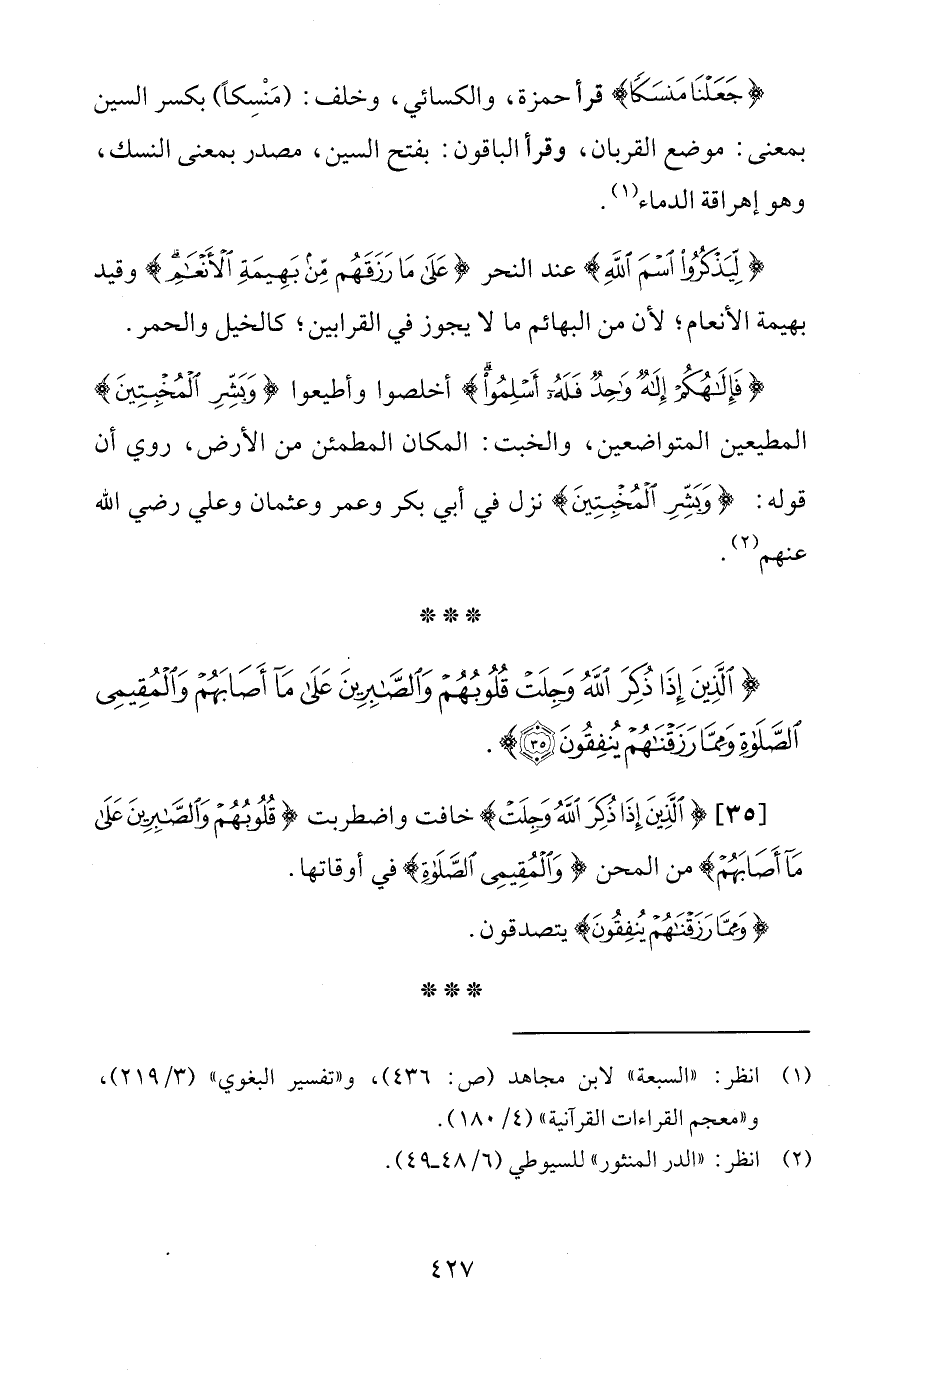 ﴿جَعَلْنَا مَنسَكًا﴾ قرأ حمزة، والكسائي، وخلف: (مَنْسِكاً) بكسر السين
بمعنى: موضع القربان، وقرأ الباقون: بفتح السين، مصدر بمعنى النسك،
وهو إهراقة الدماء(١).
﴿لِّيَذْكُرُوا۟ ٱسْمَ ٱللَّهِ﴾ عند النحر ﴿عَلَىٰ مَا رَزَقَهُم مِّنۢ بَهِيمَةِ ٱلْأَنْعَٰمِۗ﴾ وقيد
بهيمة الأنعام؛ لأن من البهائم ما لا يجوز في القرابين؛ كالخيل والحمر.
﴿فَإِلَٰهُكُمْ إِلَٰهٌ وَٰحِدٌ فَلَهُۥٓ أَسْلِمُوا۟ۗ﴾ أخلصوا وأطيعوا ﴿وَبَشِّرِ ٱلْمُخْبِتِينَ﴾
المطيعين المتواضعين، والخبت: المكان المطمئن من الأرض، روي أن
قوله: ﴿وَبَشِّرِ ٱلْمُخْبِتِينَ﴾ نزل في أبي بكر وعمر وعثمان وعلي رضي الله
عنهم(٢).
* * *
﴿ٱلَّذِينَ إِذَا ذُكِرَ ٱللَّهُ وَجِلَتْ قُلُوبُهُمْ وَٱلصَّٰبِرِينَ عَلَىٰ مَآ أَصَابَهُمْ وَٱلْمُقِيمِى
ٱلصَّلَوٰةِ وَمِمَّا رَزَقْنَٰهُمْ يُنفِقُونَ ٣٥﴾.
[٣٥] ﴿ٱلَّذِينَ إِذَا ذُكِرَ ٱللَّهُ وَجِلَتْ﴾ خافت واضطربت ﴿قُلُوبُهُمْ وَٱلصَّٰبِرِينَ عَلَىٰ
مَآ أَصَابَهُمْ﴾ من المحن ﴿وَٱلْمُقِيمِى ٱلصَّلَوٰةِ﴾ في أوقاتها.
﴿وَمِمَّا رَزَقْنَٰهُمْ يُنفِقُونَ﴾ يتصدقون.
* * *
(١) انظر: «السبعة» لابن مجاهد (ص: ٤٣٦)، و«تفسير البغوي» (٣/ ٢١٩)،
و«معجم القراءات القرآنية» (٤/ ١٨٠).
(٢) انظر: «الدر المنثور» للسيوطي (٦/ ٤٨ـ٤٩).
٤٢٧